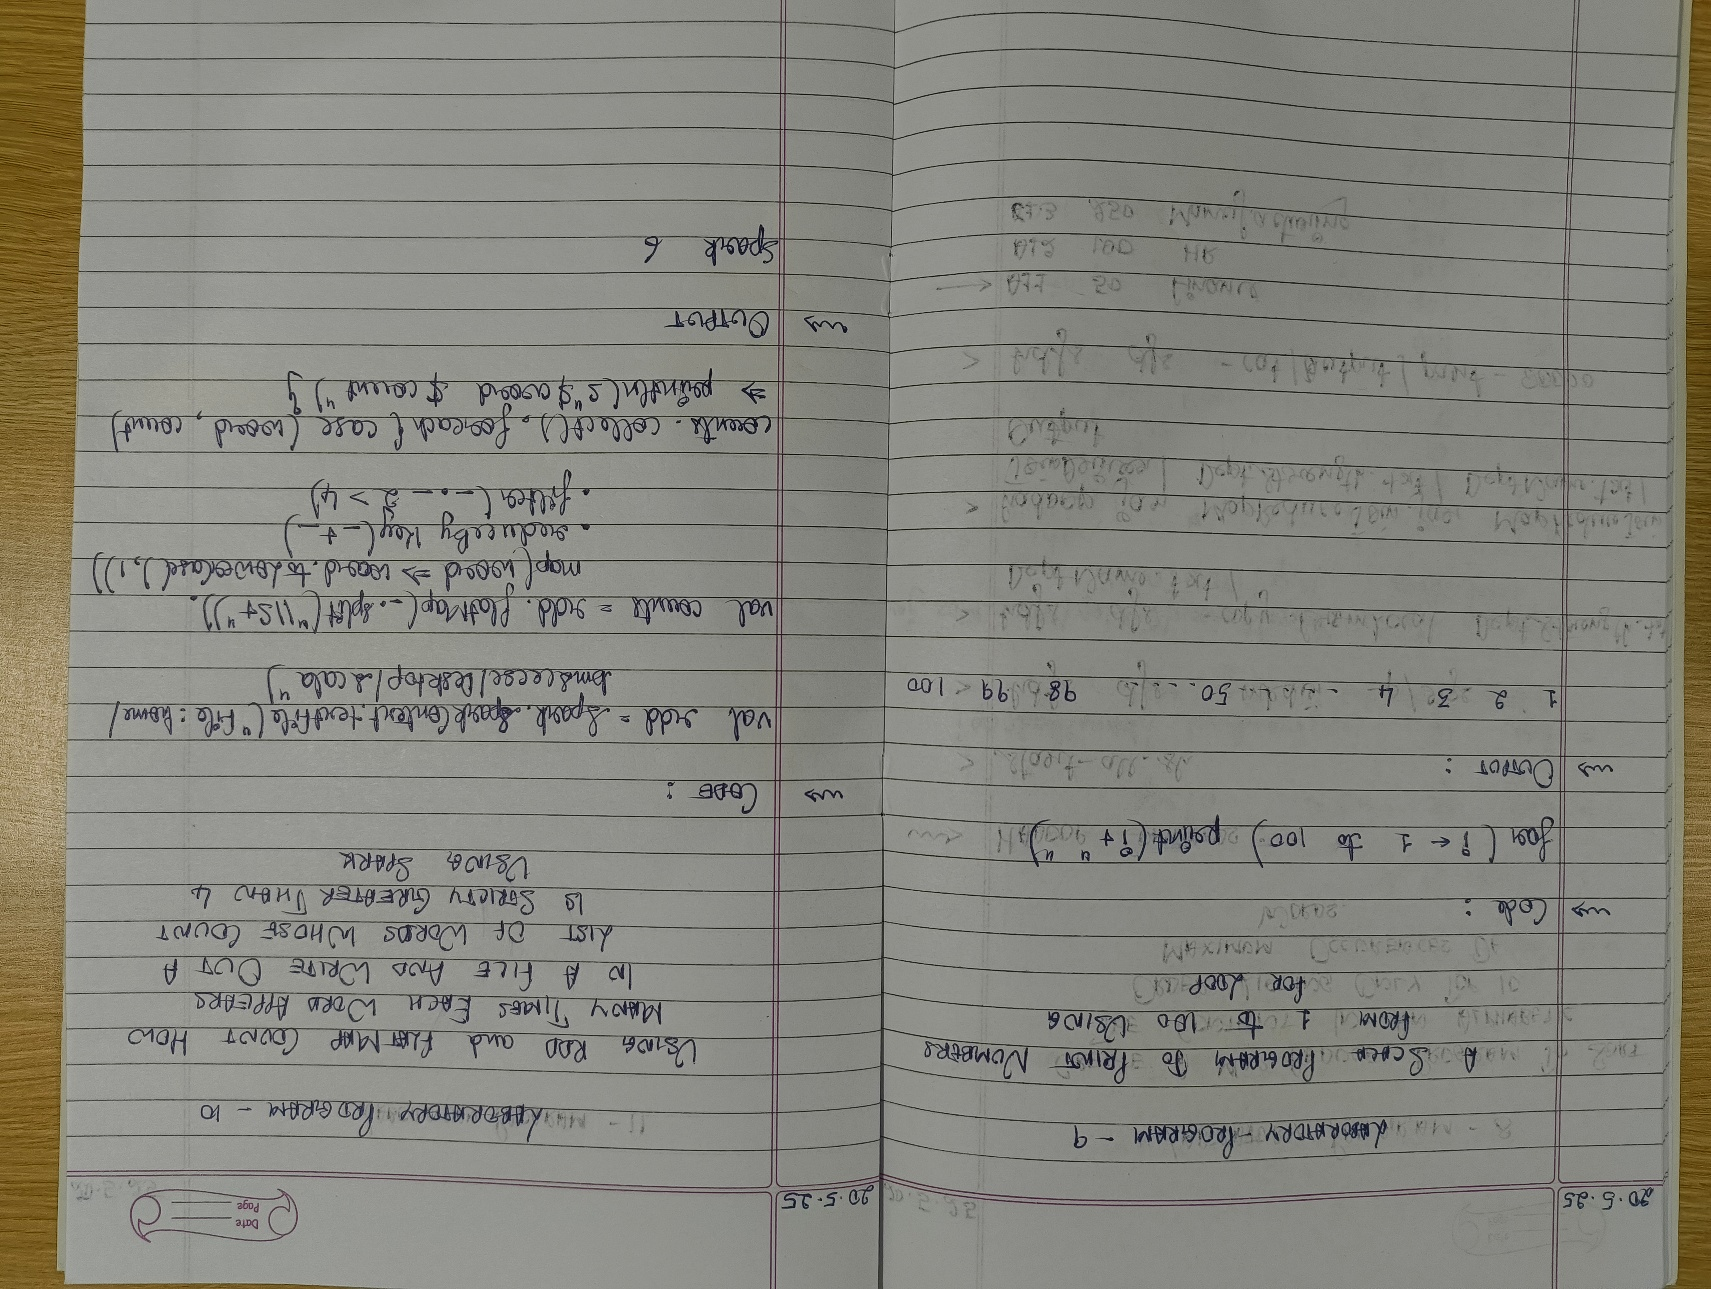 20.5.25
LABORATORY PROGRAM - 9
A SCALA PROGRAM TO PRINT NUMBERS
FROM 1 to 100 USING
FOR LOOP
Code :
for ( i ← 1 to 100) print(i+ " ")
OUTPUT :
1 2 3 4 - - 50 - .. 98 99 100
20.5.25
Date
Page
LABORATORY PROGRAM - 10
USING RDD and FLATMAP COUNT HOW
MANY TIMES EACH WORD APPEARS
IN A FILE AND WRITE OUT A
LIST OF WORDS WHOSE COUNT
IS STRICTLY GREATER THAN 4
USING SPARK
CODE :
val rdd = spark.sparkContext.textFile("File:home/
bmscecse/Desktop/scala")
val counts = rdd.flatMap(_.split("\\s+")).
map(word => word.toLowerCase(),1))
.reduceByKey(_+_)
.filter(_._2 > 4)
counts.collect().foreach{ case (word, count)
=> println(s"$word $count")}
OUTPUT
spark 6